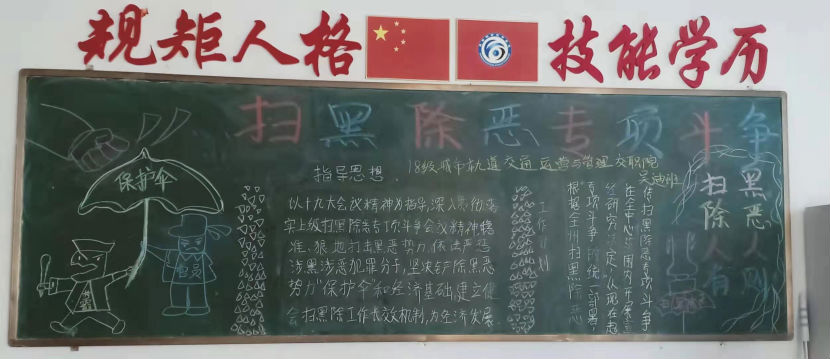 规矩人格
技能学历
扫黑除恶专项斗争
指导思想
18级城市轨道交通运营与管理 交职院
吴迪班
保护伞
以十九大会议精神为指导,深入贯彻落
实上级扫黑除恶专项斗争会议精神精
准、狠地打击黑恶势力,依法严惩
涉黑涉恶犯罪分子,坚决铲除黑恶
势力"保护伞"和经济基础建立健
会扫黑除工作长效机制,为经济发展
工作计划
根据全州扫黑除恶
专项斗争的统一部署
经研究决定,从现在起
在全中心范围内开展宣
传扫黑除恶专项斗争
黑恶人则
扫除人有